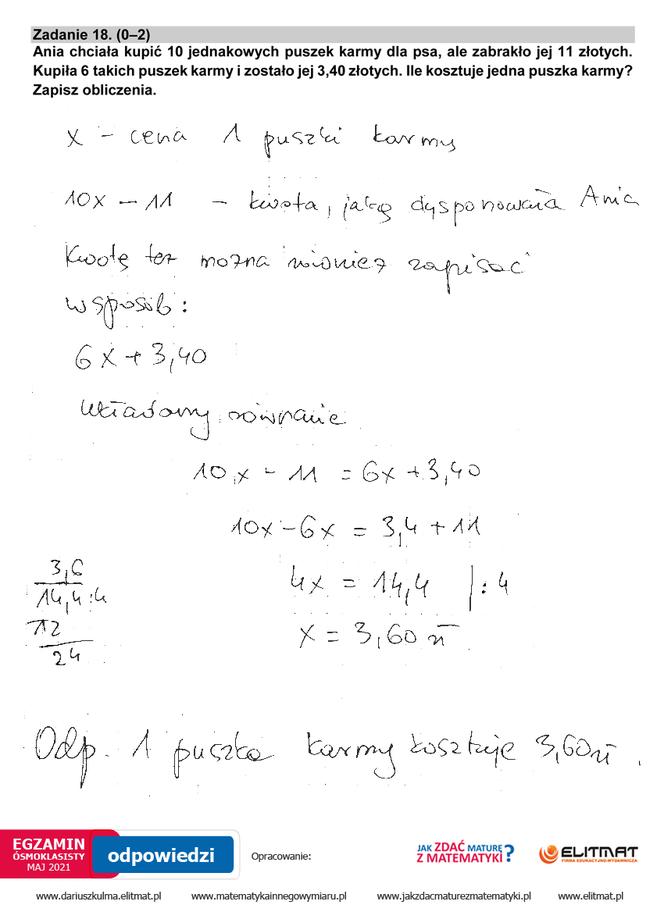 Zadanie 18. (0–2)
Ania chciała kupić 10 jednakowych puszek karmy dla psa, ale zabrakło jej 11 złotych.
Kupiła 6 takich puszek karmy i zostało jej 3,40 złotych. Ile kosztuje jedna puszka karmy?
Zapisz obliczenia.
x – cena 1 puszki karmy
10x – 11 – kwota, jaką dysponowała Ania
Kwotę też można również zapisać
w sposób:
6x + 3,40
Układamy równanie
10x – 11 = 6x + 3,40
10x – 6x = 3,4 + 11
4x = 14,4 / : 4
x = 3,60 zł
3,6
14,4 : 4
12
24
Odp. 1 puszka karmy kosztuje 3,60 zł.
EGZAMIN
ÓSMOKLASISTY
MAJ 2021
odpowiedzi
Opracowanie:
JAK ZDAĆ MATURĘ
Z MATEMATYKI?
ELITMAT
FIRMA EDUKACYJNO-WYDAWNICZA
www.dariuszkulma.elitmat.pl www.matematykainnegowymiaru.pl www.jakzdacmaturezmatematyki.pl www.elitmat.pl